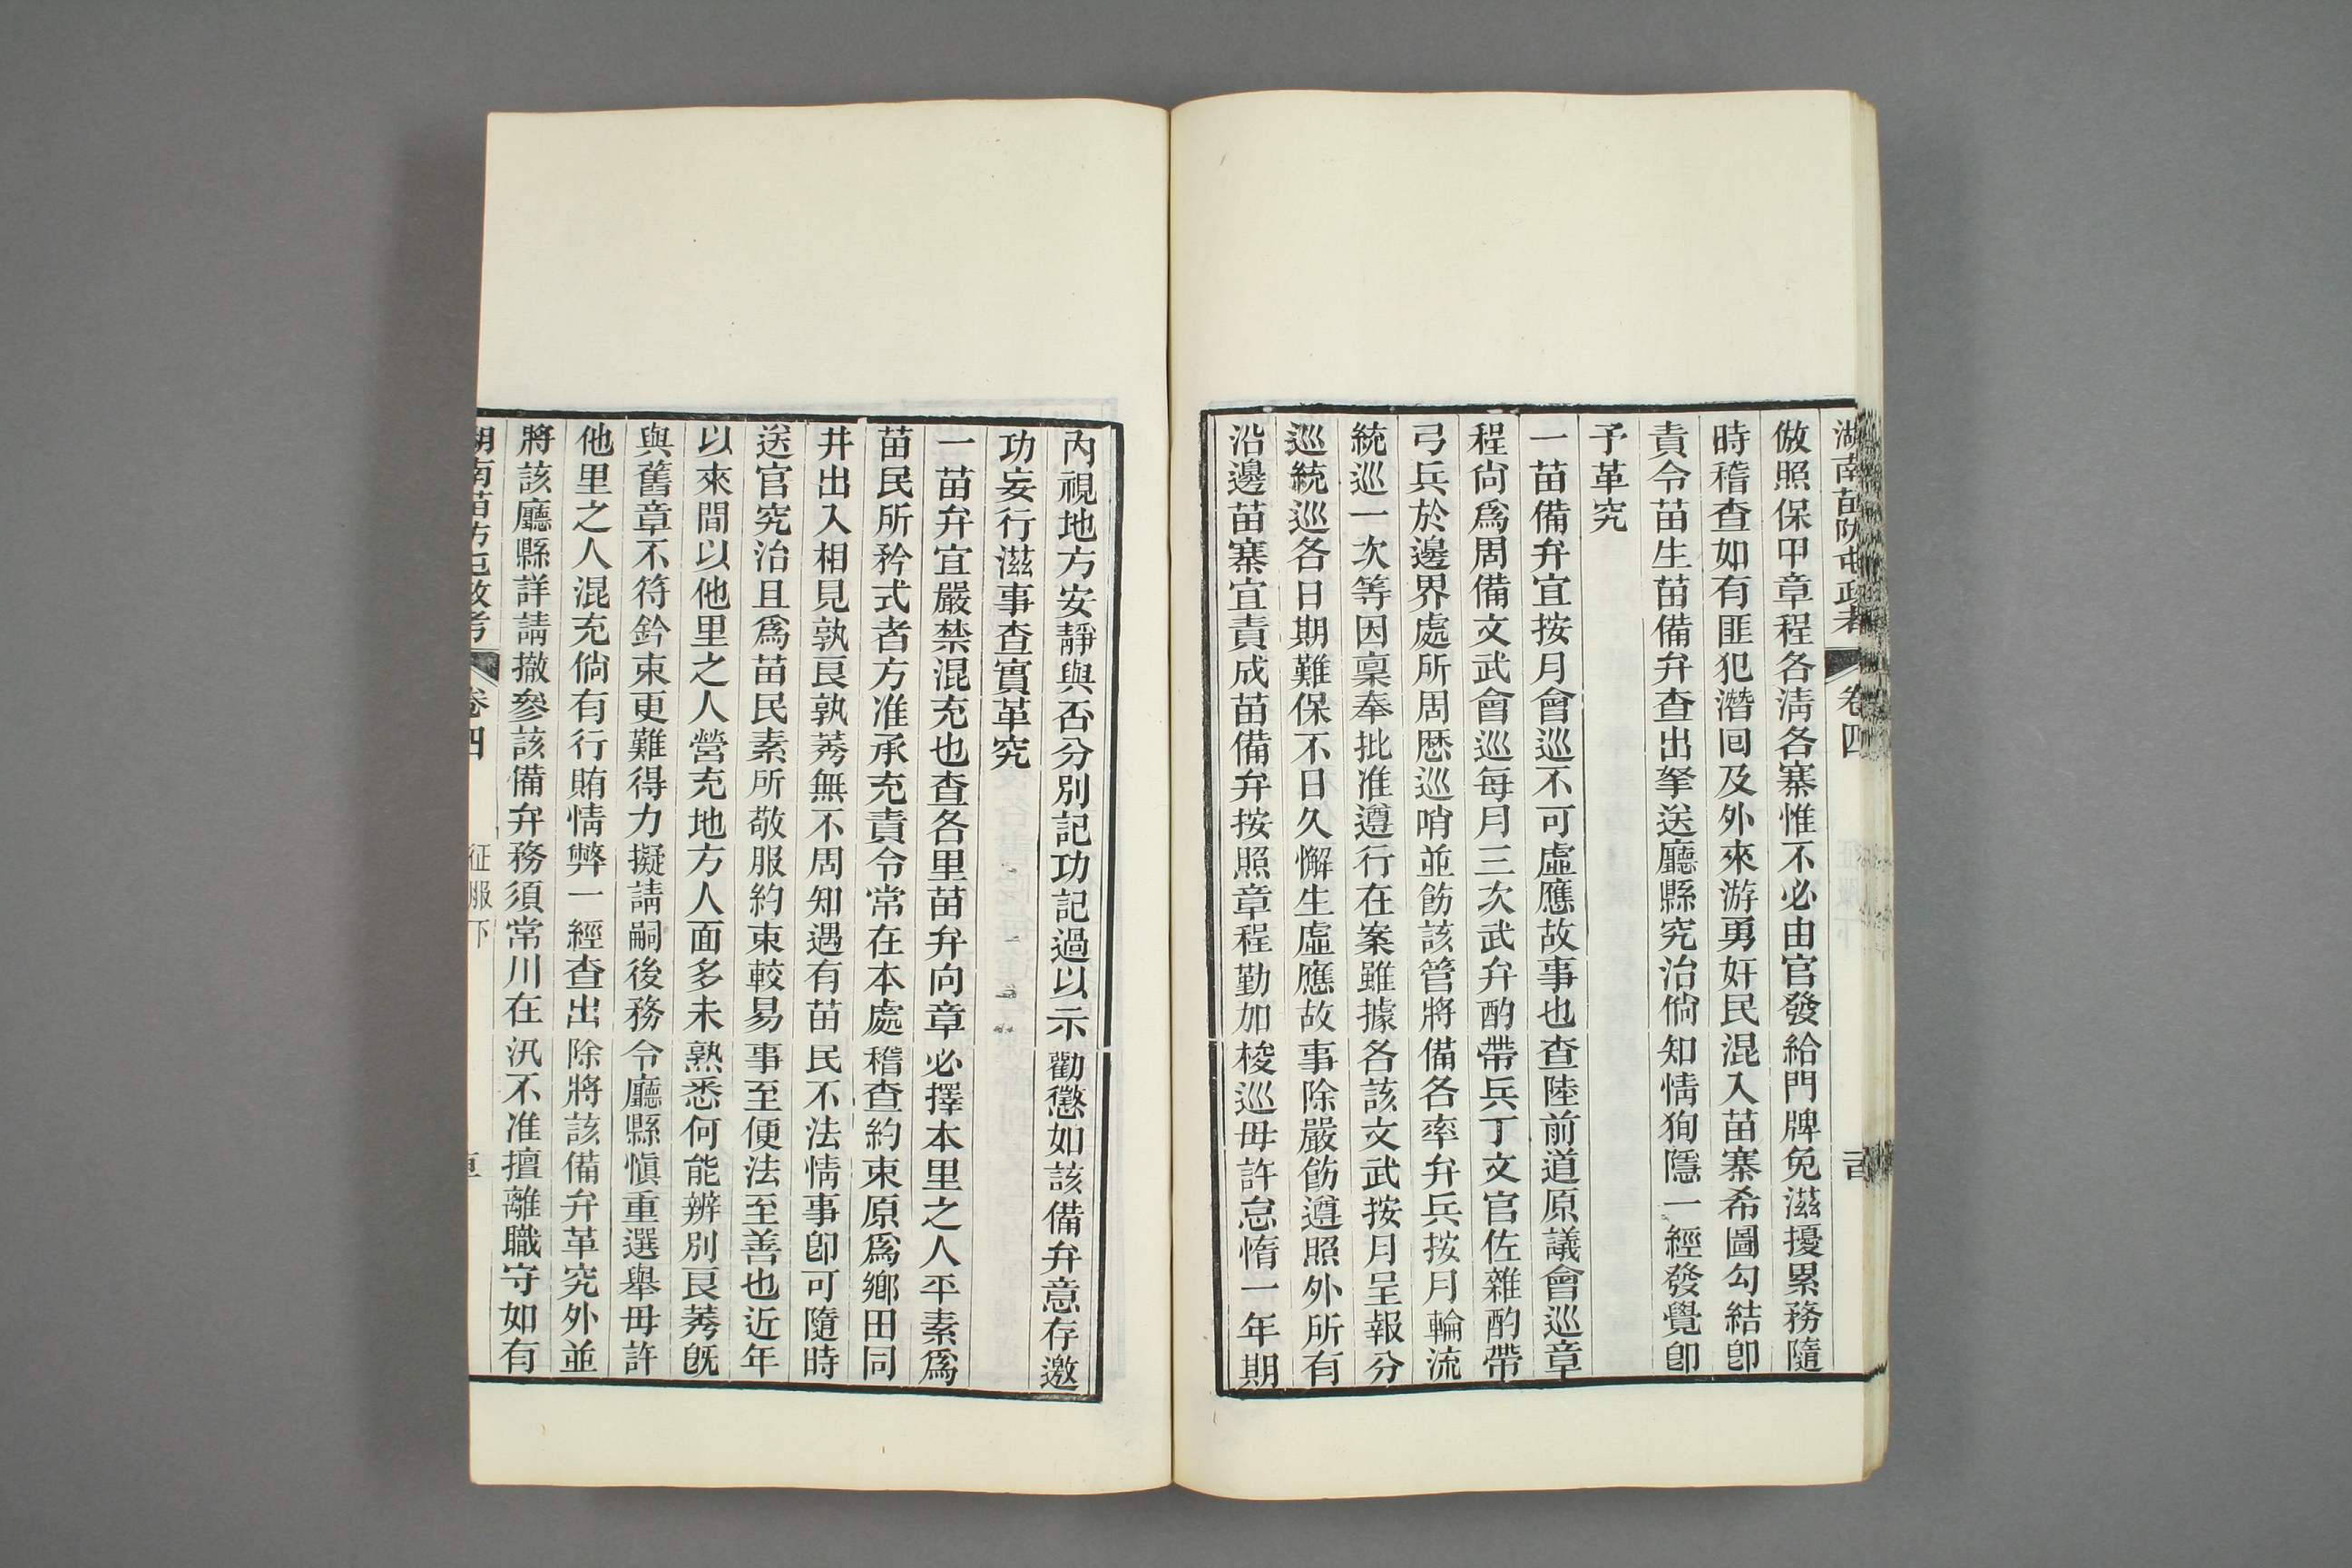 湖南苗防屯政考 卷四
倣照保甲章程各清各寨惟不必由官發給門牌免滋擾累務隨
時稽查如有匪犯潛囘及外來游勇奸民混入苗寨希圖勾結卽
責令苗生苗備弁查出拏送廳縣究治倘知情狥隱一經發覺卽
予革究
一苗備弁宜按月會巡不可虛應故事也查陸前道原議會巡章
程尙爲周備文武會巡每月三次武弁酌帶兵丁文官佐雜酌帶
弓兵於邊界處所周厯巡哨並飭該管將備各率弁兵按月輪流
統巡一次等因稟奉批准遵行在案雖據各該文武按月呈報分
巡統巡各日期難保不日久懈生虛應故事除嚴飭遵照外所有
沿邊苗寨宜責成苗備弁按照章程勤加梭巡毋許怠惰一年期
內視地方安靜與否分別記功記過以示勸懲如該備弁意存邀
功妄行滋事查實革究
一苗弁宜嚴禁混充也查各里苗弁向章必擇本里之人平素爲
苗民所矜式者方准承充責令常在本處稽查約束原爲鄉田同
井出入相見孰良孰莠無不周知遇有苗民不法情事卽可隨時
送官究治且爲苗民素所敬服約束較易事至便法至善也近年
以來間以他里之人營充地方人面多未熟悉何能辨別良莠旣
與舊章不符鈐束更難得力擬請嗣後務令廳縣愼重選舉毋許
他里之人混充倘有行賄情弊一經查出除將該備弁革究外並
將該廳縣詳請撤參該備弁務須常川在汛不准擅離職守如有
湖南苗防屯政考 卷四 征服下